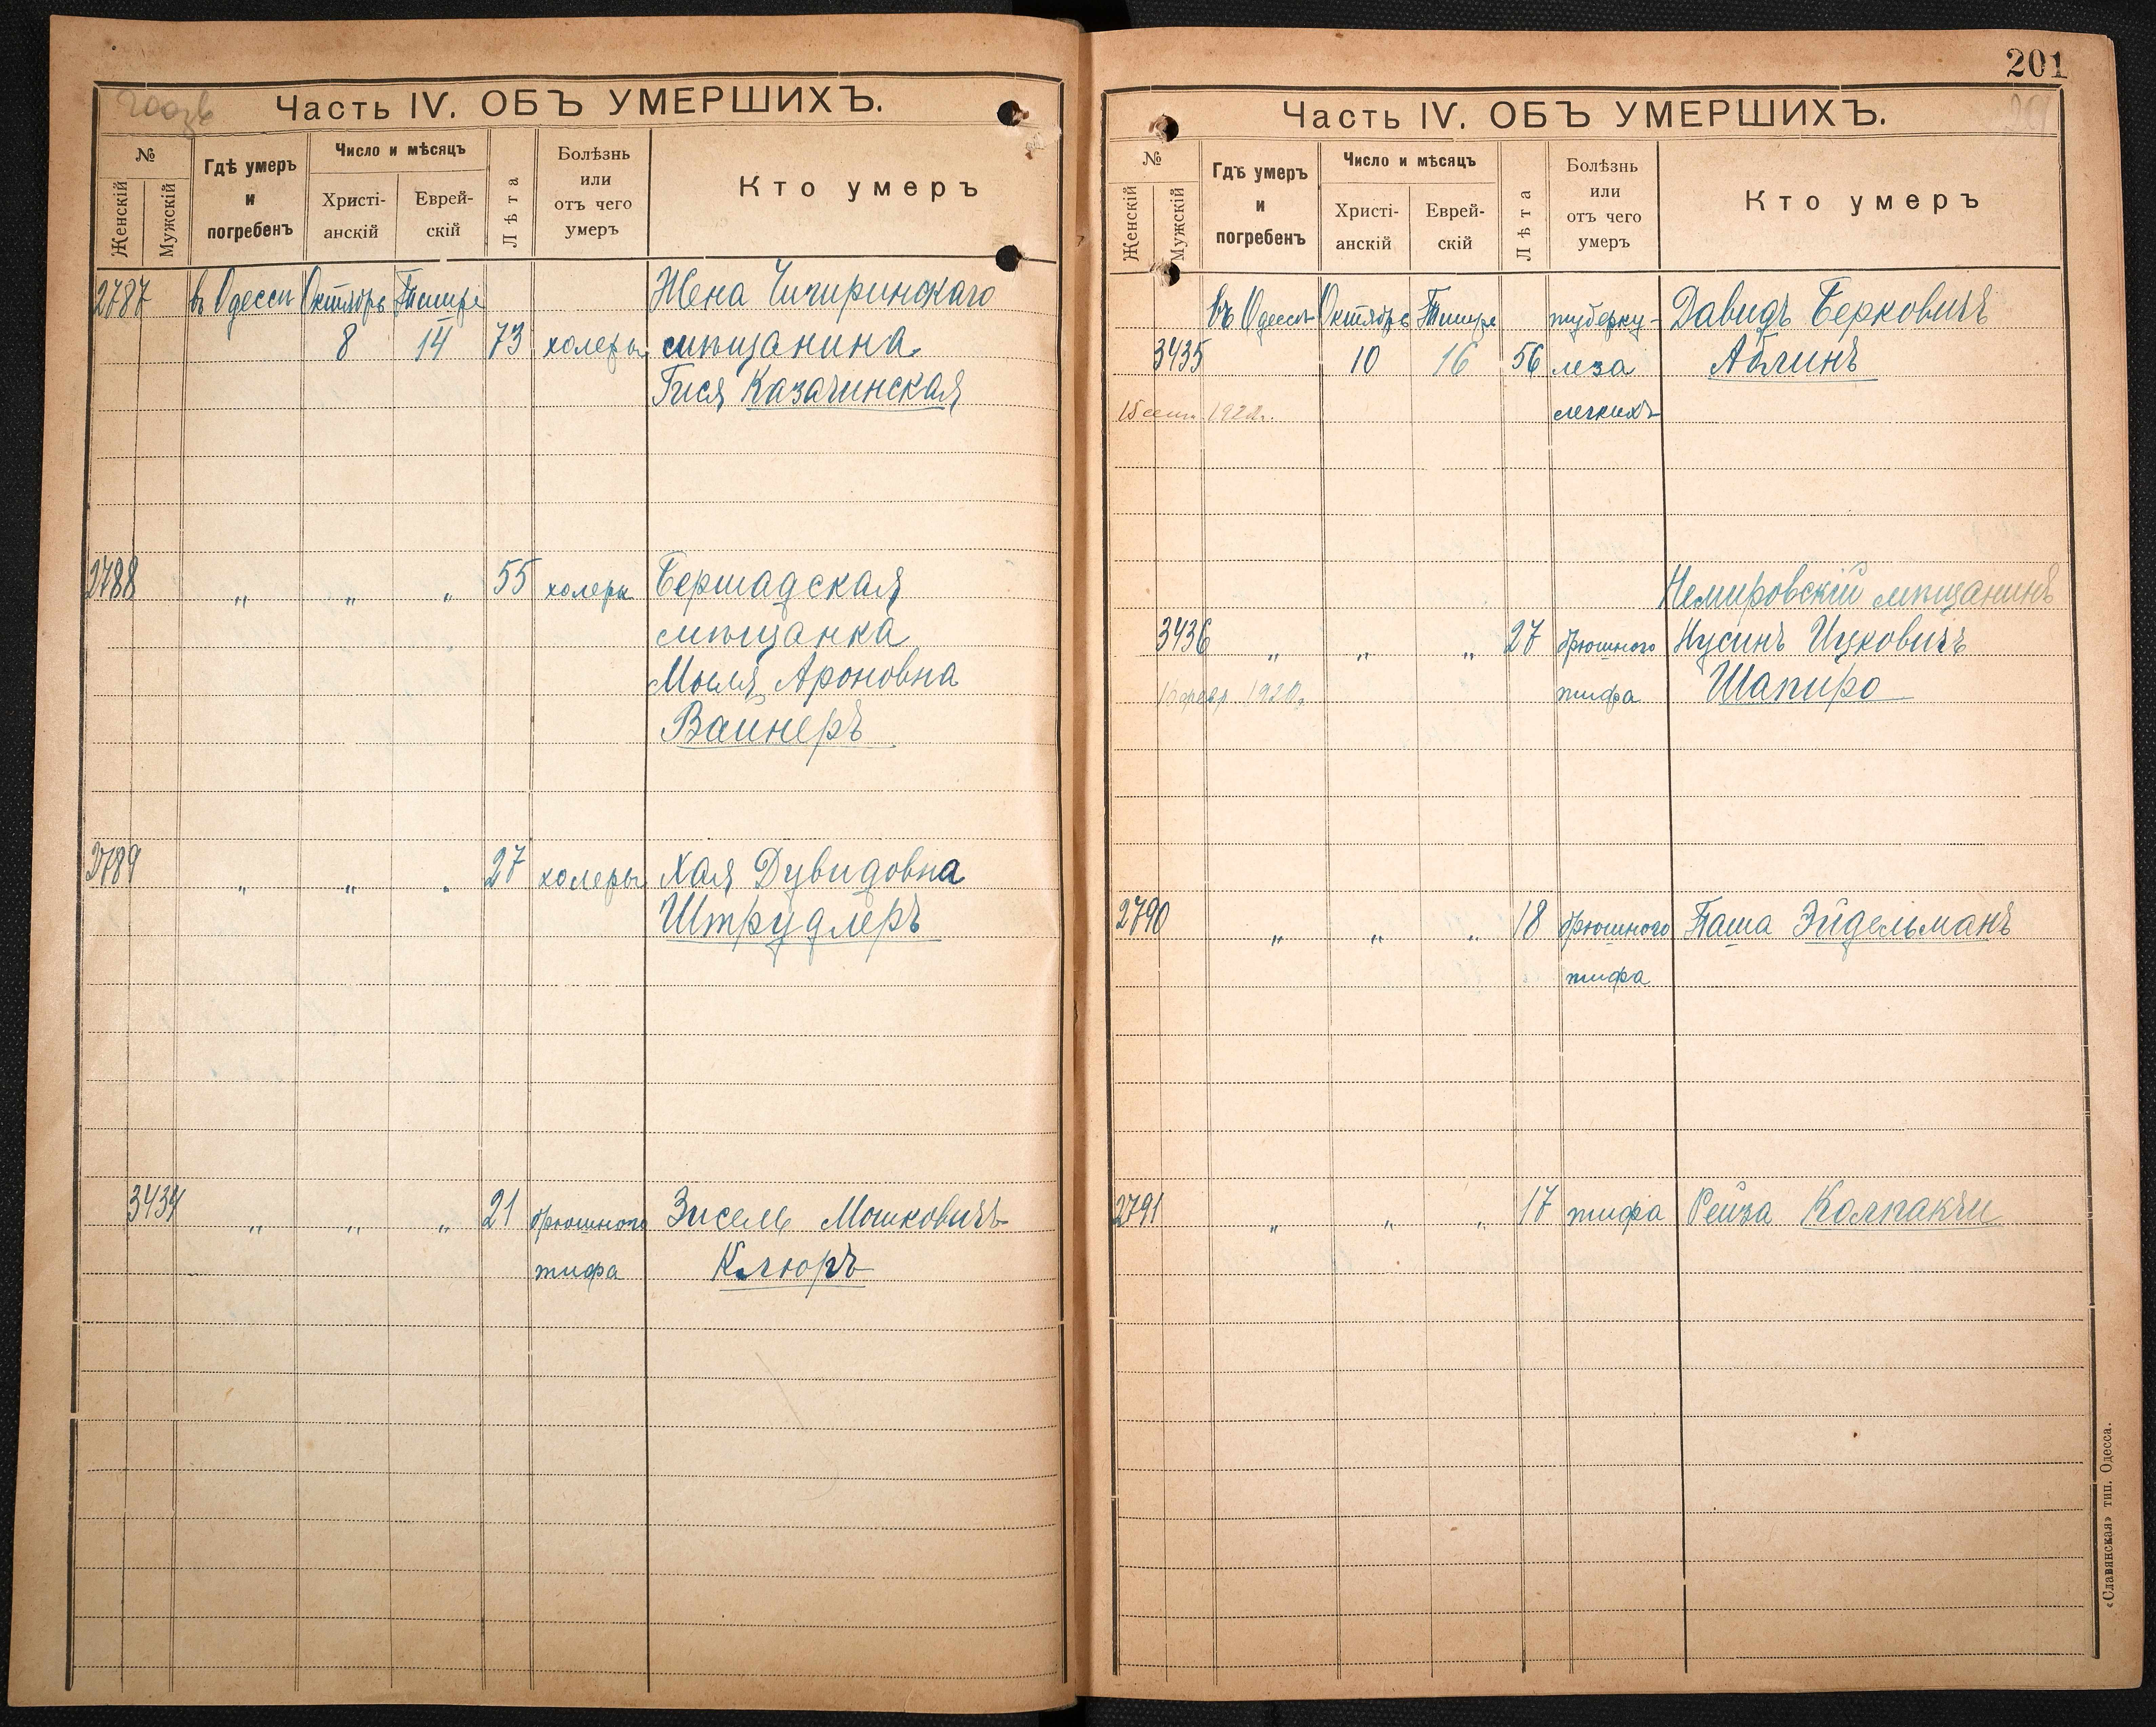 200зв
Часть IV. ОБЪ УМЕРШИХЪ.
№
Женскій
Мужскій
Гдѣ умеръ
и
погребенъ
Число и мѣсяцъ
Христі-
анскій
Еврей-
скій
Лѣта
Болѣзнь
или
отъ чего
умеръ
Кто умеръ
2787 въ Одессѣ Октябрь Тишре Жена Чигиринскаго
8 14 73 холеры мѣщанина
Гися Казачинская
2788 " " " 55 холеры Бершадская
мѣщанка
Мыля Ароновна
Вайнеръ
2789 " " " 27 холеры Хая Дувидовна
Штрудлеръ
3434 " " " 21 брюшного Зисель Мошковичъ
тифа Клюръ
201
201
Часть IV. ОБЪ УМЕРШИХЪ.
№
Женскій
Мужскій
Гдѣ умеръ
и
погребенъ
Число и мѣсяцъ
Христі-
анскій
Еврей-
скій
Лѣта
Болѣзнь
или
отъ чего
умеръ
Кто умеръ
въ Одессѣ Октябрь Тишре туберку- Давидъ Берковичъ
3435 10 16 56 леза Аблинъ
15 сент. 1922г. легкихъ
Немировскій мѣщанинъ
3436 " " " 27 брюшного Нусинъ Ицковичъ
16 февр. 1920г. тифа Шапиро
2790 " " " 18 брюшного Паша Эйдельманъ
тифа
2791 " " " 17 тифа Рейза Колпакчи
«Славянская» тип. Одесса.